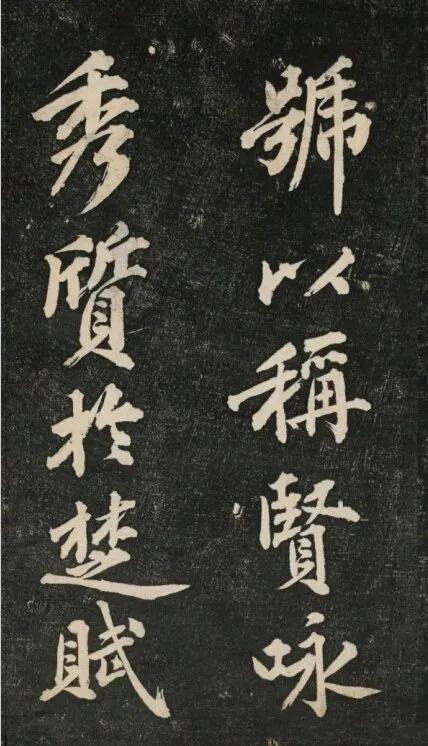 號以稱賢詠
秀質於楚賦